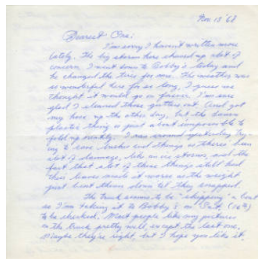 Nov. 13 '68
Dearest One:
I'm sorry I haven't written more
lately. The big storm here stirred up a lot of
concern. I went down to Bobby's today and
he changed the tires for me. The weather was
so wonderful here for so long, I guess we
thought it would go on forever. I'm sure
glad I cleaned those gutters out. And got
my hose up the other day, but the darn
plastic thing is just about impossible to
fold up neatly. I was around yesterday
to bushes and things as there's been
a lot of damage, like ice storms and the
fact that a lot of these things still had
their leaves made it worse as the weight
just bent them down til they snapped.
The truck seems to be "skipping" a bit
so I'm taking it to Bobby's on Sat. (16th)
to be checked. Most people like my pictures
in the truck pretty well, except the last one.
Maybe they're right but I hope you like it.